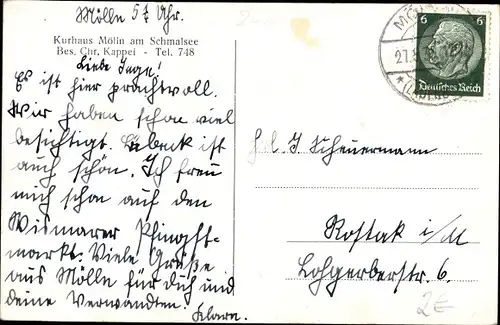 Mölln 5¾ Uhr.
Kurhaus Mölln am Schmalsee
Bes. Chr. Kappei - Tel. 748
Liebe Inge!
Es ist hier prachtvoll.
Wir haben schon viel
besichtigt. Lübeck ist
auch schön. Ich freu
mich schon auf den
Wismarer Pfingst-
markt. Viele Grüße
aus Mölln für dich und
deine Verwandten.
Klara.
6 6
Deutsches Reich
27.
Frl. I. Scheuermann
Rostok i/M
Lohgerberstr. 6.
2€